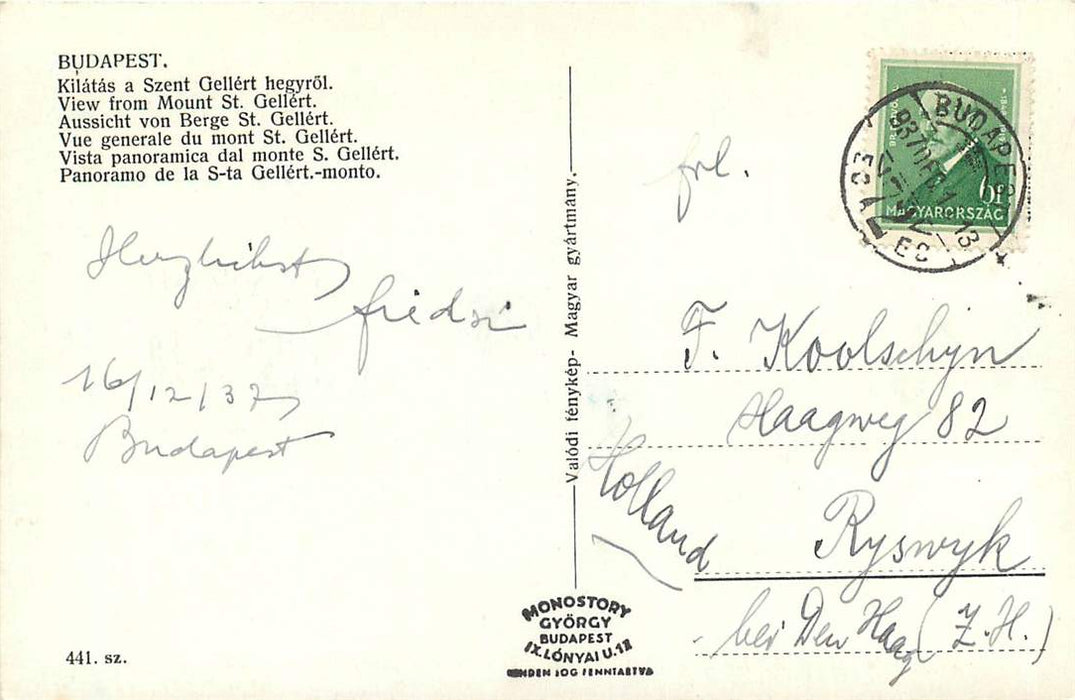 BUDAPEST.
Kilátás a Szent Gellért hegyről.
View from Mount St. Gellért.
Aussicht von Berge St. Gellért.
Vue generale du mont St. Gellért.
Vista panoramica dal monte S. Gellért.
Panoramo de la S-ta Gellért.-monto.
Herzlichst
16/12/37
Budapest
441. sz.
Valódi fénykép- Magyar gyártmány.
MONOSTORY
GYÖRGY
BUDAPEST
IX. LÓNYAI U. 18
MINDEN JOG FENNTARTVA
BUDAPEST
6f
MAGYARORSZÁG
F. Koolschyn
Haagweg 82
Ryswyk
Holland
bei Den Haag (Z.H.)